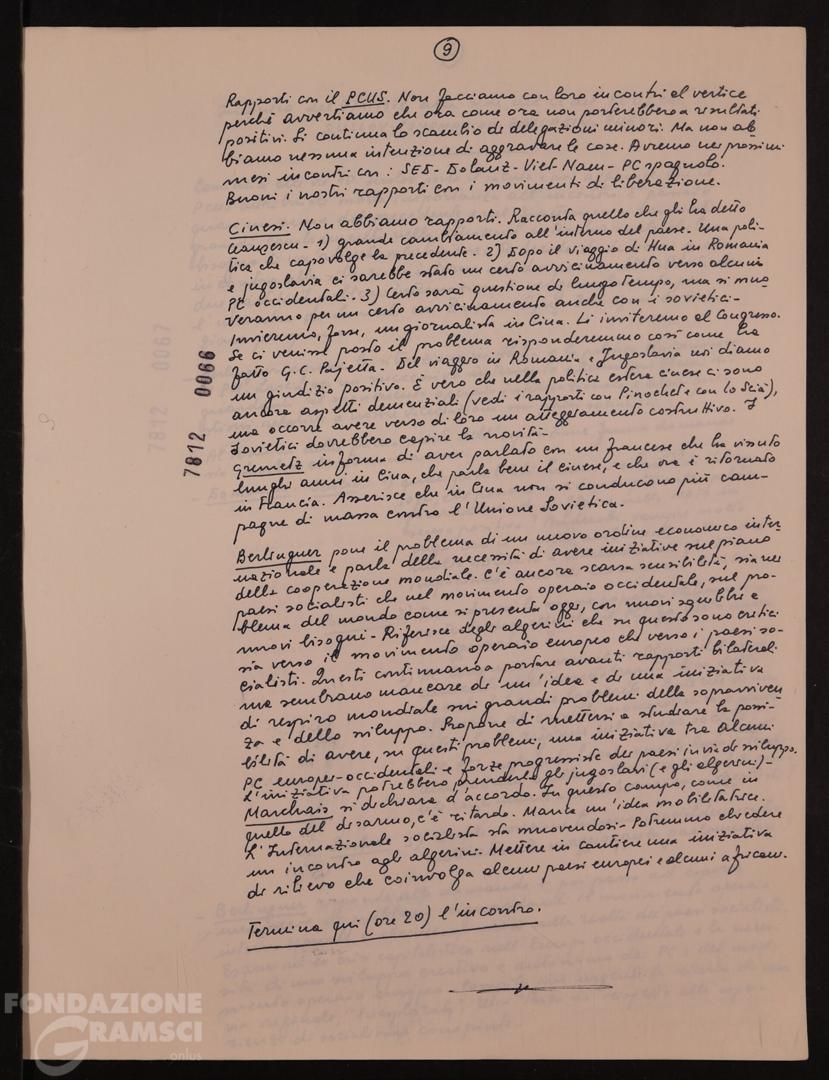 9
Rapporti con il PCUS. Non facciamo con loro incontri al vertice
perché avvertiamo che ora come ora non porterebbero a risultati
positivi. Si continua lo scambio di delegazioni minori. Ma non ab-
biamo nessuna intenzione di aggravare le cose. Avremo nei prossimi
mesi incontri con: SED - Bolanz - Viet-Nam - PC spagnolo.
Buoni i nostri rapporti con i movimenti di liberazione.
Cinesi. Non abbiamo rapporti. Racconta quello che gli ha detto
Ceauşescu - 1) grande cambiamento all'interno del paese. Una poli-
tica che capovolge la precedente. 2) Dopo il viaggio di Hua in Romania
e Jugoslavia ci sarebbe stato un certo avvicinamento verso alcuni
PC occidentali. 3) Certo sarà questione di lungo tempo, ma si muo-
veranno per un certo avvicinamento anche con i sovietici -
Invieremo, forse, un giornalista in Cina. Li inviteremo al Congresso.
Se ci venisse posto il problema risponderemmo così come ha
fatto G.C. Pajetta. Del viaggio in Romania e Jugoslavia noi diamo
un giudizio positivo. È vero che nella politica estera cinese ci sono
ancora aspetti demenziali (vedi i rapporti con Pinochet e con lo Scià),
ma occorre avere verso di loro un atteggiamento costruttivo. I
Sovietici dovrebbero capire la novità -
Gremetz informa di aver parlato con un francese che ha vissuto
lunghi anni in Cina, che parla bene il cinese, e che ora è ritornato
in Francia. Asserisce che in Cina non si conducono più cam-
pagne di massa contro l'Unione Sovietica.
Berlinguer pone il problema di un nuovo ordine economico inter-
nazionale e parla della necessità di avere iniziative sul piano
della cooperazione mondiale. C'è ancora scarsa sensibilità, sia nei
paesi socialisti che nel movimento operaio occidentale, sul pro-
blema del mondo come si presenta oggi, con nuovi squilibri e
nuovi bisogni - Riferisce degli algerini che su questo sono critici
sia verso il movimento operaio europeo che verso i paesi so-
cialisti. Questi continuano a portare avanti rapporti bilaterali
ma sembrano mancare di un'idea e di una iniziativa
di respiro mondiale sui grandi problemi della sopravviven
za e dello sviluppo. Propone di mettersi a studiare la possi-
bilità di avere, su questi problemi, una iniziativa tra alcuni
PC europei-occidentali e forze progressiste dei paesi in via di sviluppo.
L'iniziativa potrebbero prenderla gli jugoslavi (e gli algerini) -
Marchais si dichiara d'accordo. In questo campo, come in
quello del disarmo, c'è ritardo. Manca un'idea mobilitatrice.
L'Internazionale socialista sta muovendosi - Potremmo chiedere
un incontro agli algerini. Mettere in cantiere una iniziativa
di rilievo che coinvolga alcuni paesi europei e alcuni africani.
Termina qui (ore 20) l'incontro.
7812 0066
7812 0067
FONDAZIONE
GRAMSCI
onlus